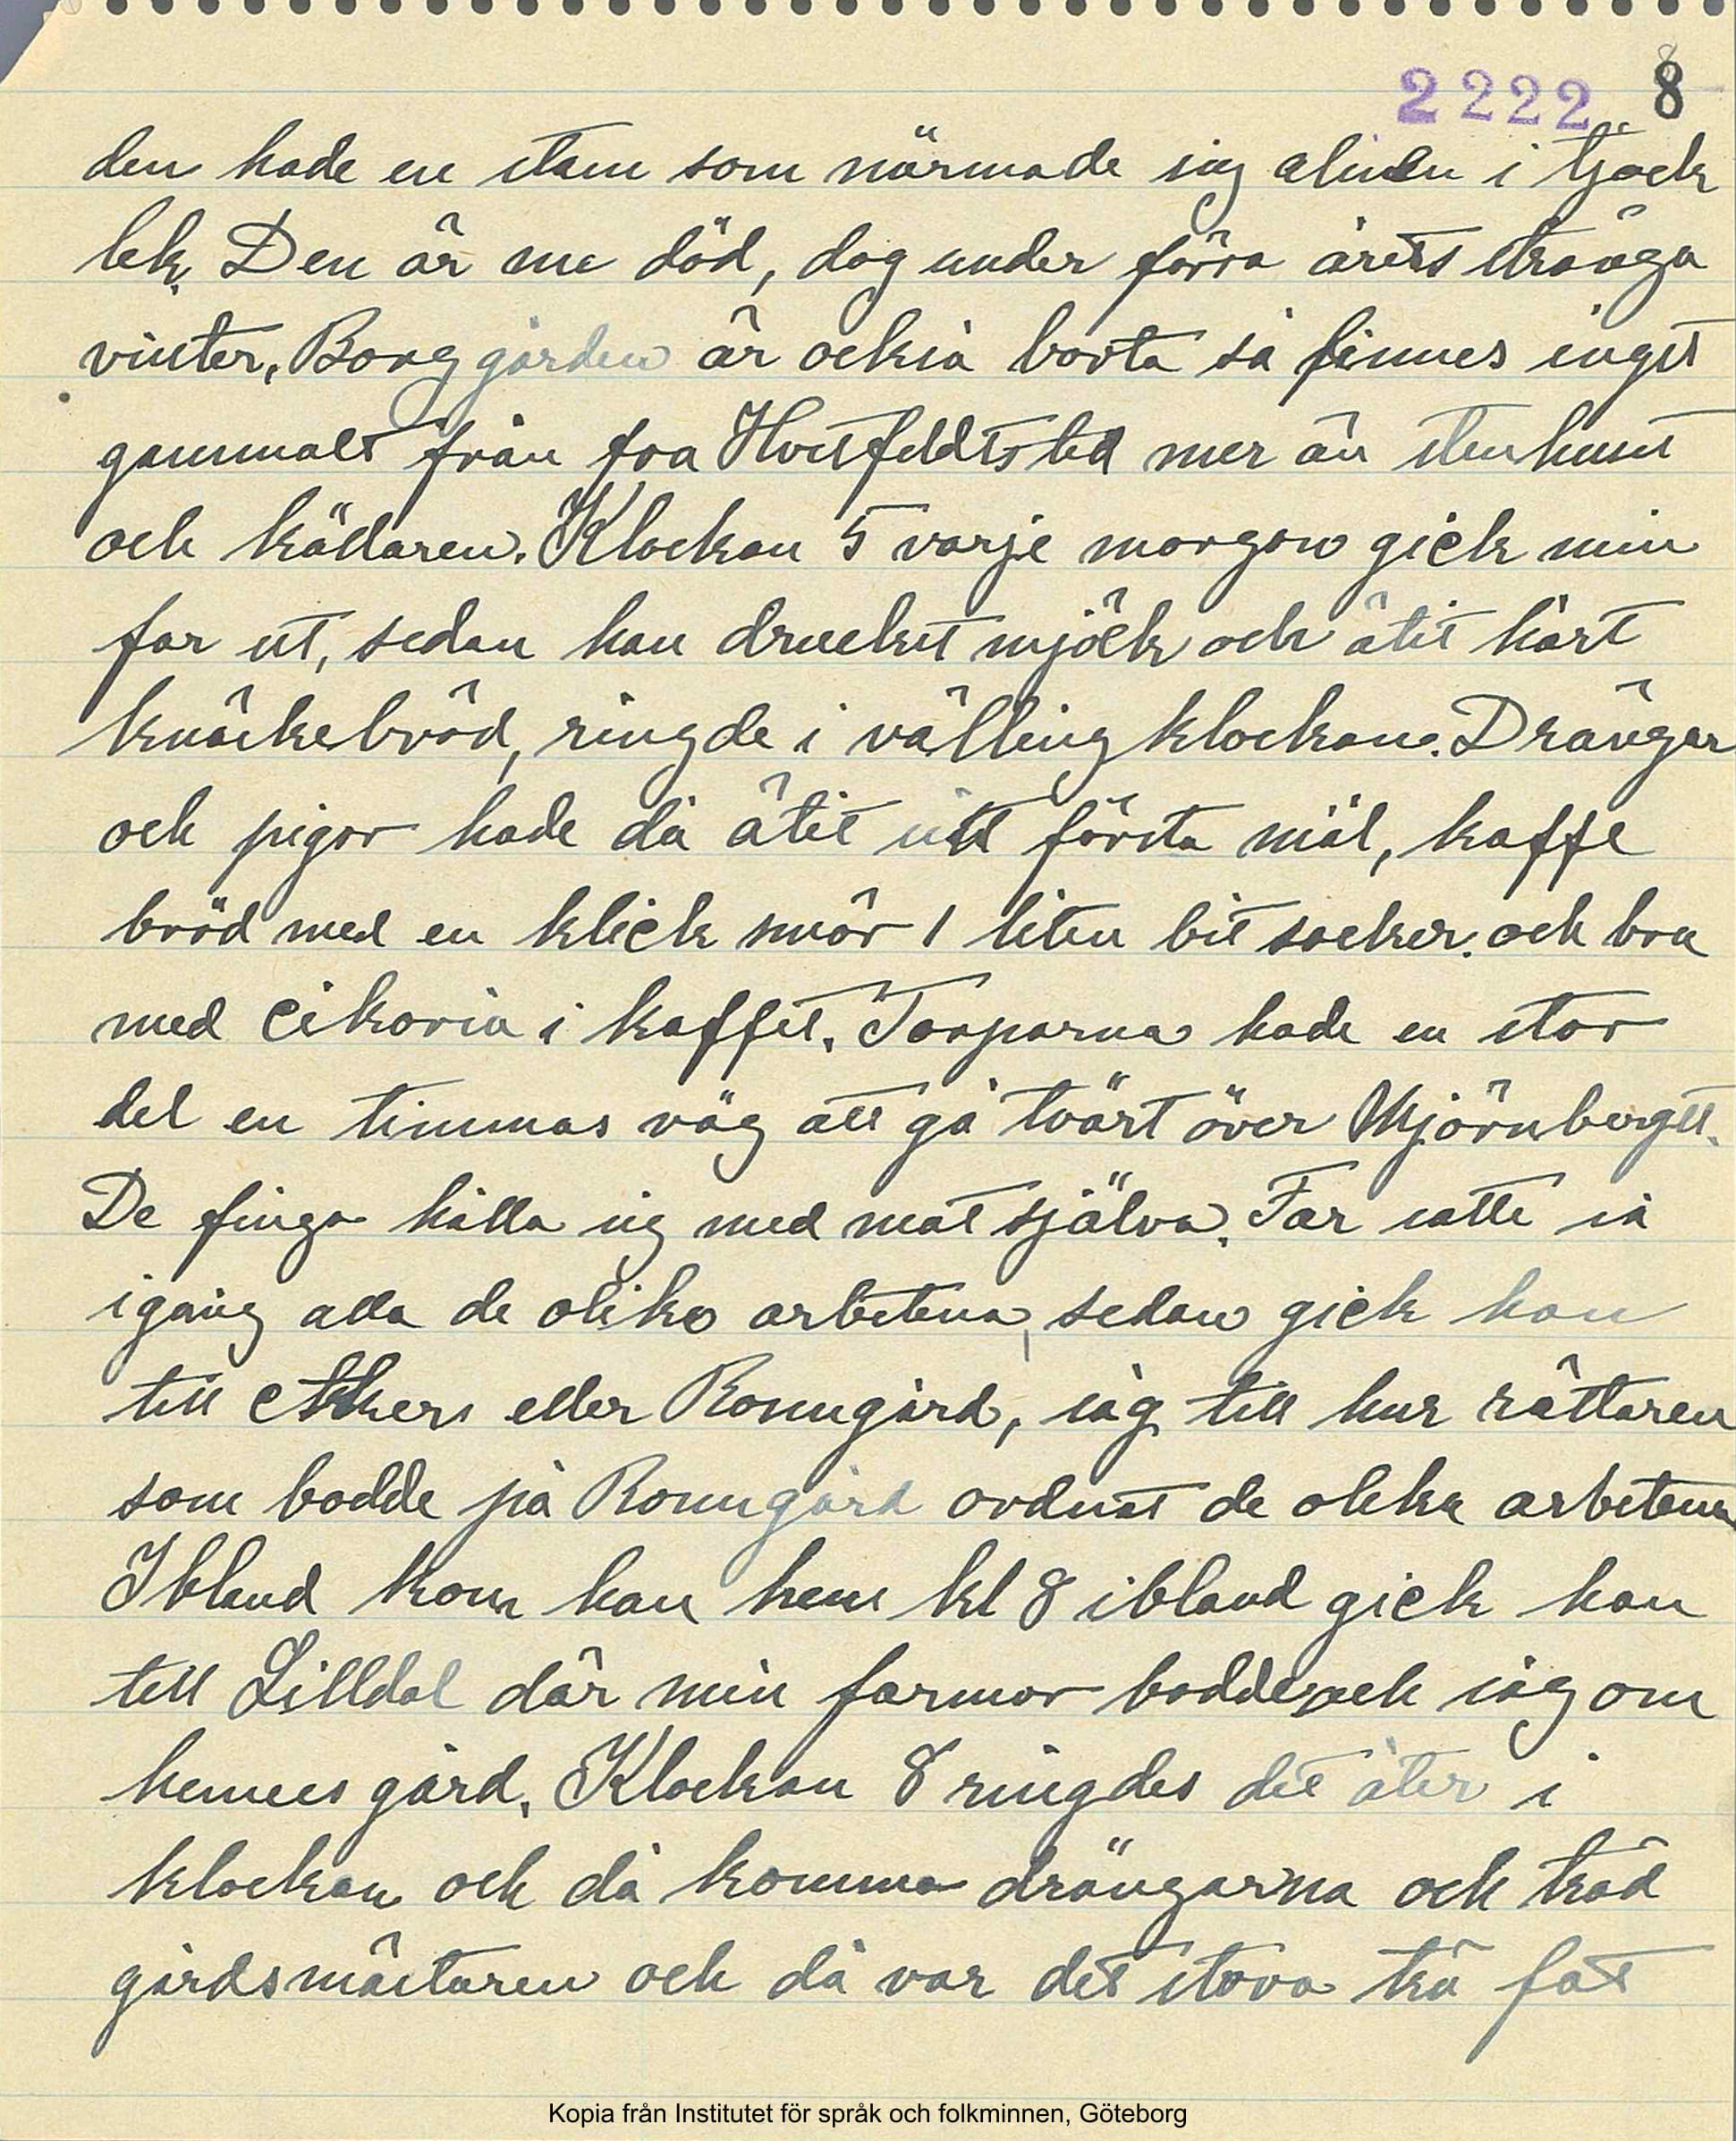 2222 8
den hade en stam som närmade sig alnen i tjock
lek. Den är nu död, dog under förra årets stränga
vinter, Borggården är också borta så finnes inget
gammalt från fra Hvitfeldts tid mer än stenhuset
och källaren. Klockan 5 varje morgon gick min
far ut, sedan han druckit mjölk och ätit hårt
knäckebröd, ringde i vällingklockan. Drängar
och pigor hade då ätit sitt första mål, kaffe
bröd med en klick smör 1 liten bit socker. och bra
med cikoria i kaffet. Torparna hade en stor
del en timmas väg att gå tvärt över Mjörnberget.
De fingo hålla sig med mat själva. Far satte så
igång alla de olika arbetena, sedan gick han
till eller Ronngård, såg till hur rättaren
som bodde på Ronngård ordnat de olika arbetena
Ibland kom han hem kl 8 ibland gick han
till Lilldal där min farmor bodde och såg om
hennes gård. Klockan 8 ringdes det åter i
klockan och då komma drängarna och träd
gårdsmästaren och då var det stora trä fat
Kopia från Institutet för språk och folkminnen, Göteborg